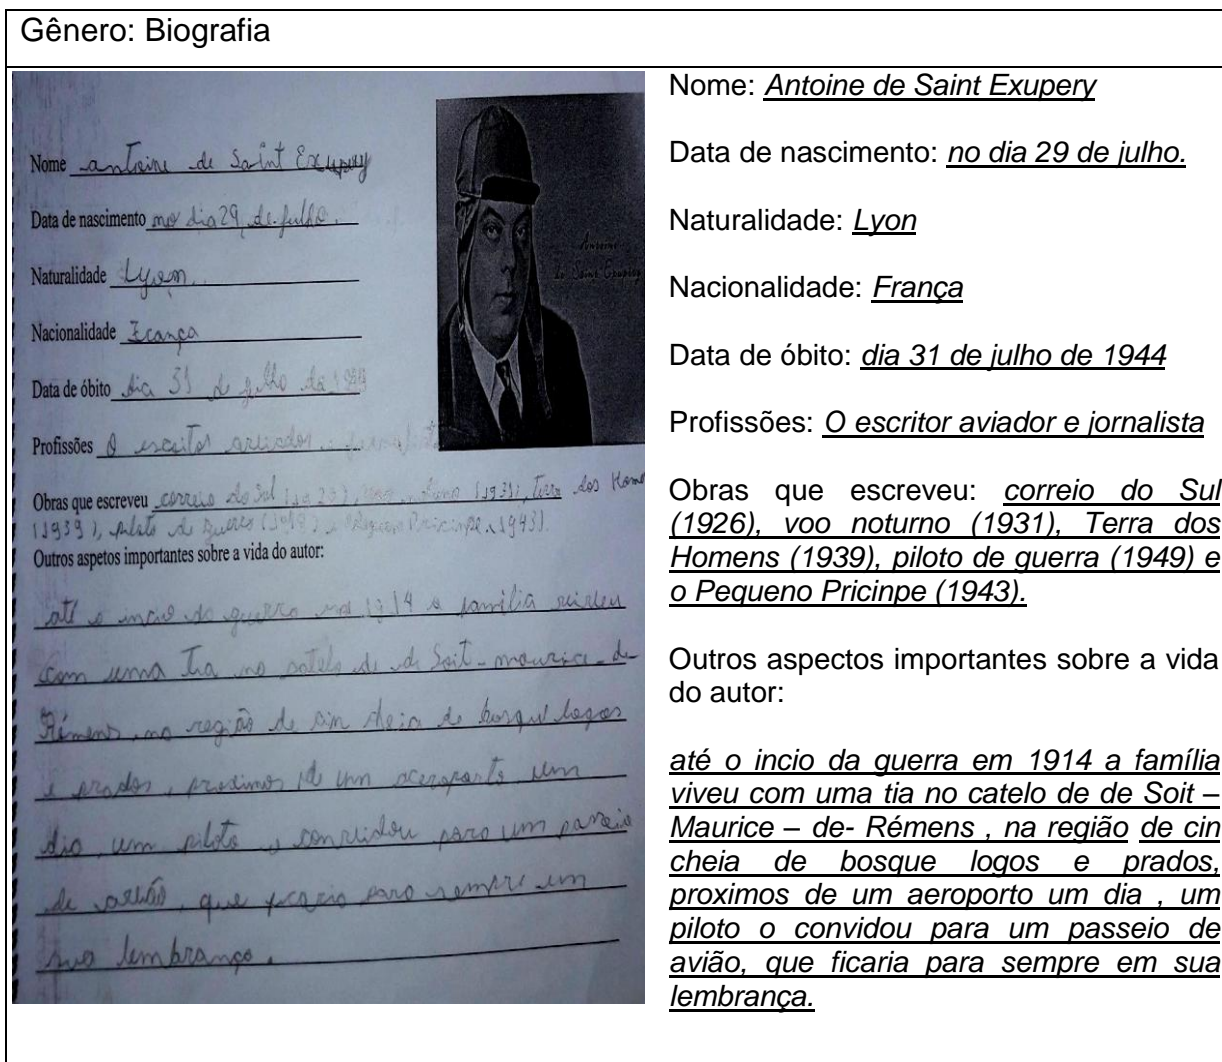 Gênero: Biografia
Nome antoine de Saint Exupery
Data de nascimento no dia 29 de julho.
Naturalidade Lyon
Nacionalidade França
Data de óbito dia 31 de julho de 1944
Profissões O escritor aviador e jornalista
Obras que escreveu correio do Sul (1929), voo noturno (1931), Terra dos Home
(1939), piloto de guerra e o Pequeno Pricinpe (1943).
Outros aspetos importantes sobre a vida do autor:
até o incio da guerra 1914 a família viveu
com uma tia no catelo de de Soit - maurice - de
Rémens, na região de cin cheia de bosque logos
e prados, proximos de um aeroporto um
dia, um piloto o convidou para um passeio
de avião, que ficaria para sempre em
sua lembrança.
Antoine
de Saint Exupéry
Nome: Antoine de Saint Exupery
Data de nascimento: no dia 29 de julho.
Naturalidade: Lyon
Nacionalidade: França
Data de óbito: dia 31 de julho de 1944
Profissões: O escritor aviador e jornalista
Obras que escreveu: correio do Sul
(1926), voo noturno (1931), Terra dos
Homens (1939), piloto de guerra (1949) e
o Pequeno Pricinpe (1943).
Outros aspectos importantes sobre a vida
do autor:
até o incio da guerra em 1914 a família
viveu com uma tia no catelo de de Soit –
Maurice – de- Rémens , na região de cin
cheia de bosque logos e prados,
proximos de um aeroporto um dia , um
piloto o convidou para um passeio de
avião, que ficaria para sempre em sua
lembrança.